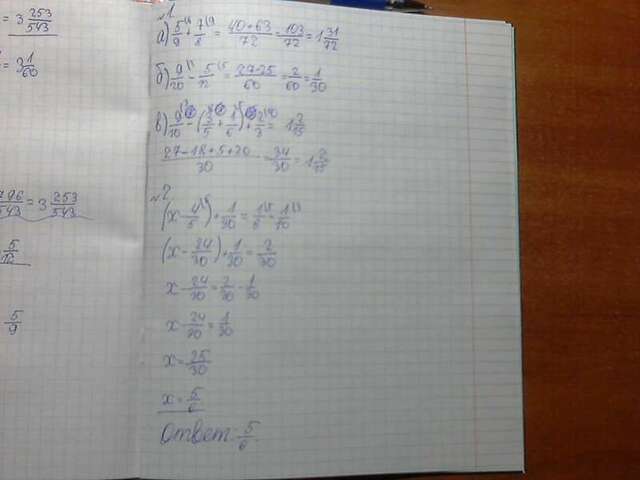 = 3 253/543
= 3 1/60
796/543 = 3 253/543
5/12
5/9
№1
а) 5/9 + 7/8 = 40+63/72 = 103/72 = 1 31/72
б) 9/20 - 5/12 = 27-25/60 = 2/60 = 1/30
в) 9/10 - (3/5 + 1/6) + 2/3 = 1 2/15
27-18+5+20/30 = 34/30 = 1 2/15
№2
(x - 4/5) + 1/30 = 1/6 - 1/10
(x - 24/30) + 1/30 = 2/30
x - 24/30 = 2/30 - 1/30
x - 24/30 = 1/30
x = 25/30
x = 5/6
Ответ: 5/6.